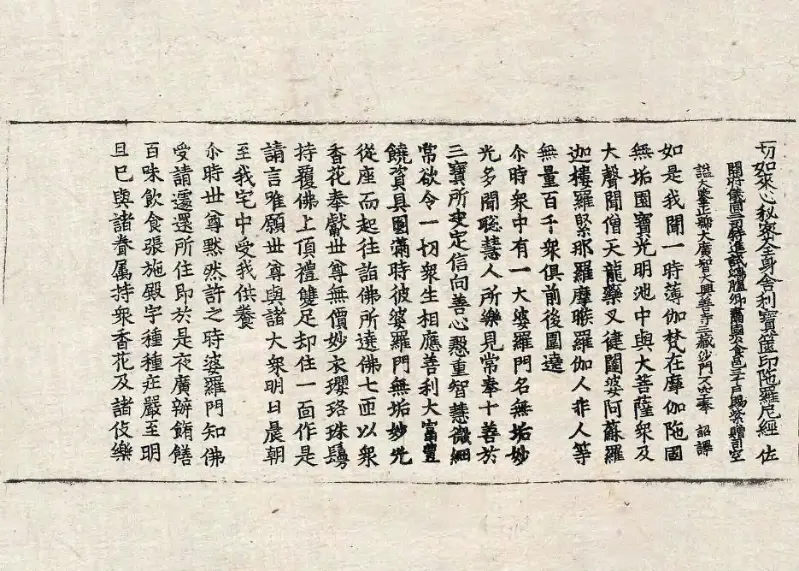 切如來心秘密全身舍利寶篋印陁羅尼經 佐
開府儀同三司特進試鴻臚卿肅國公食邑三千户賜紫贈司空
謚大鑒正號大廣智大興善寺三藏沙門不空奉 詔譯
如是我聞一時薄伽梵在摩伽陁國
無垢園寶光明池中與大菩薩衆及
大聲聞僧天龍藥叉健闥婆阿蘇羅
迦樓羅緊那羅摩睺羅伽人非人等
無量百千衆俱前後圍遶
尒時衆中有一大婆羅門名無垢妙
光多聞聡慧人所樂見常奉十善於
三寶所决定信向善心慇重智慧微細
常欲令一切衆生相應善利大富豐
饒資具圓滿時彼婆羅門無垢妙光
從座而起往詣佛所遶佛七匝以衆
香花奉獻世尊無價妙衣瓔珞珠鬘
持覆佛上頂禮雙足却住一面作是
請言唯願世尊與諸大衆明日晨朝
至我宅中受我供養
尒時世尊默然許之時婆羅門知佛
受請遽還所住即於是夜廣辦餚饍
百味飲食張施殿宇種種莊嚴至明
旦已與諸眷属持衆香花及諸伎樂